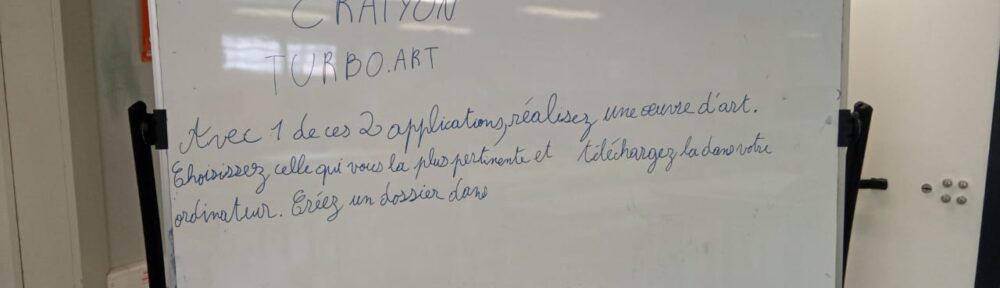 CRAIYON
TURBO.ART
Avec 1 de ces 2 applications, réalisez une œuvre d'art.
Choisissez celle qui vous la plus pertinente et téléchargez la dans votre
ordinateur. Créez un dossier dans